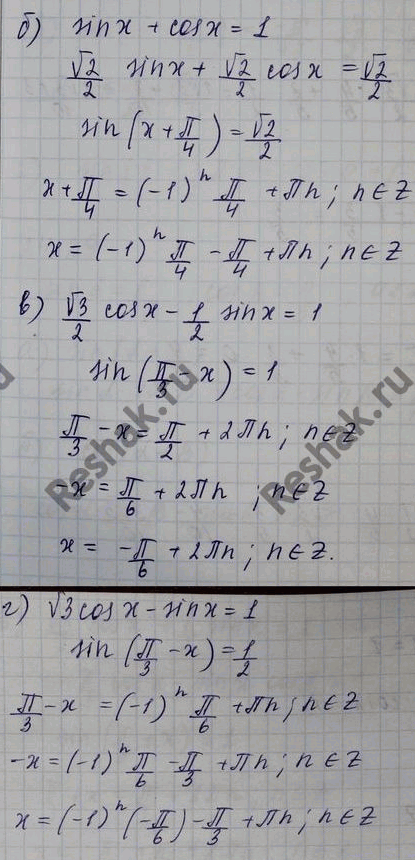 б) sinx + cosx = 1
√2/2 sinx + √2/2 cosx = √2/2
sin(x + π/4) = √2/2
x + π/4 = (-1)ⁿ π/4 + πn; n ∈ Z
x = (-1)ⁿ π/4 - π/4 + πn; n ∈ Z
в) √3/2 cosx - 1/2 sinx = 1
sin(π/3 - x) = 1
π/3 - x = π/2 + 2πn; n ∈ Z
-x = π/6 + 2πn; n ∈ Z
x = -π/6 + 2πn; n ∈ Z.
г) √3 cosx - sinx = 1
sin(π/3 - x) = 1/2
π/3 - x = (-1)ⁿ π/6 + πn; n ∈ Z
-x = (-1)ⁿ π/6 - π/3 + πn; n ∈ Z
x = (-1)ⁿ (-π/6) - π/3 + πn; n ∈ Z
Reshak.ru
Reshak.ru